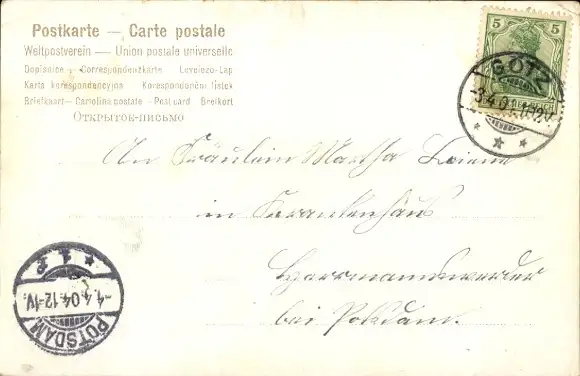 Postkarte — Carte postale
Weltpostverein — Union postale universelle
Dopisnice - Correspondenzkarte Levelezo-Lap
Karta korespondencyjna Korespondenčni listek
Briefkaart - Cartolina postale - Post card Brefkort
Открытое-письмо
5 5
GÖTZ
-3.4.0
An Fräulein Martha
in Krankenhaus
Herrmannswerder
bei Potsdam.
* 1. *
-4.4.04.12-1V.
POTSDAM